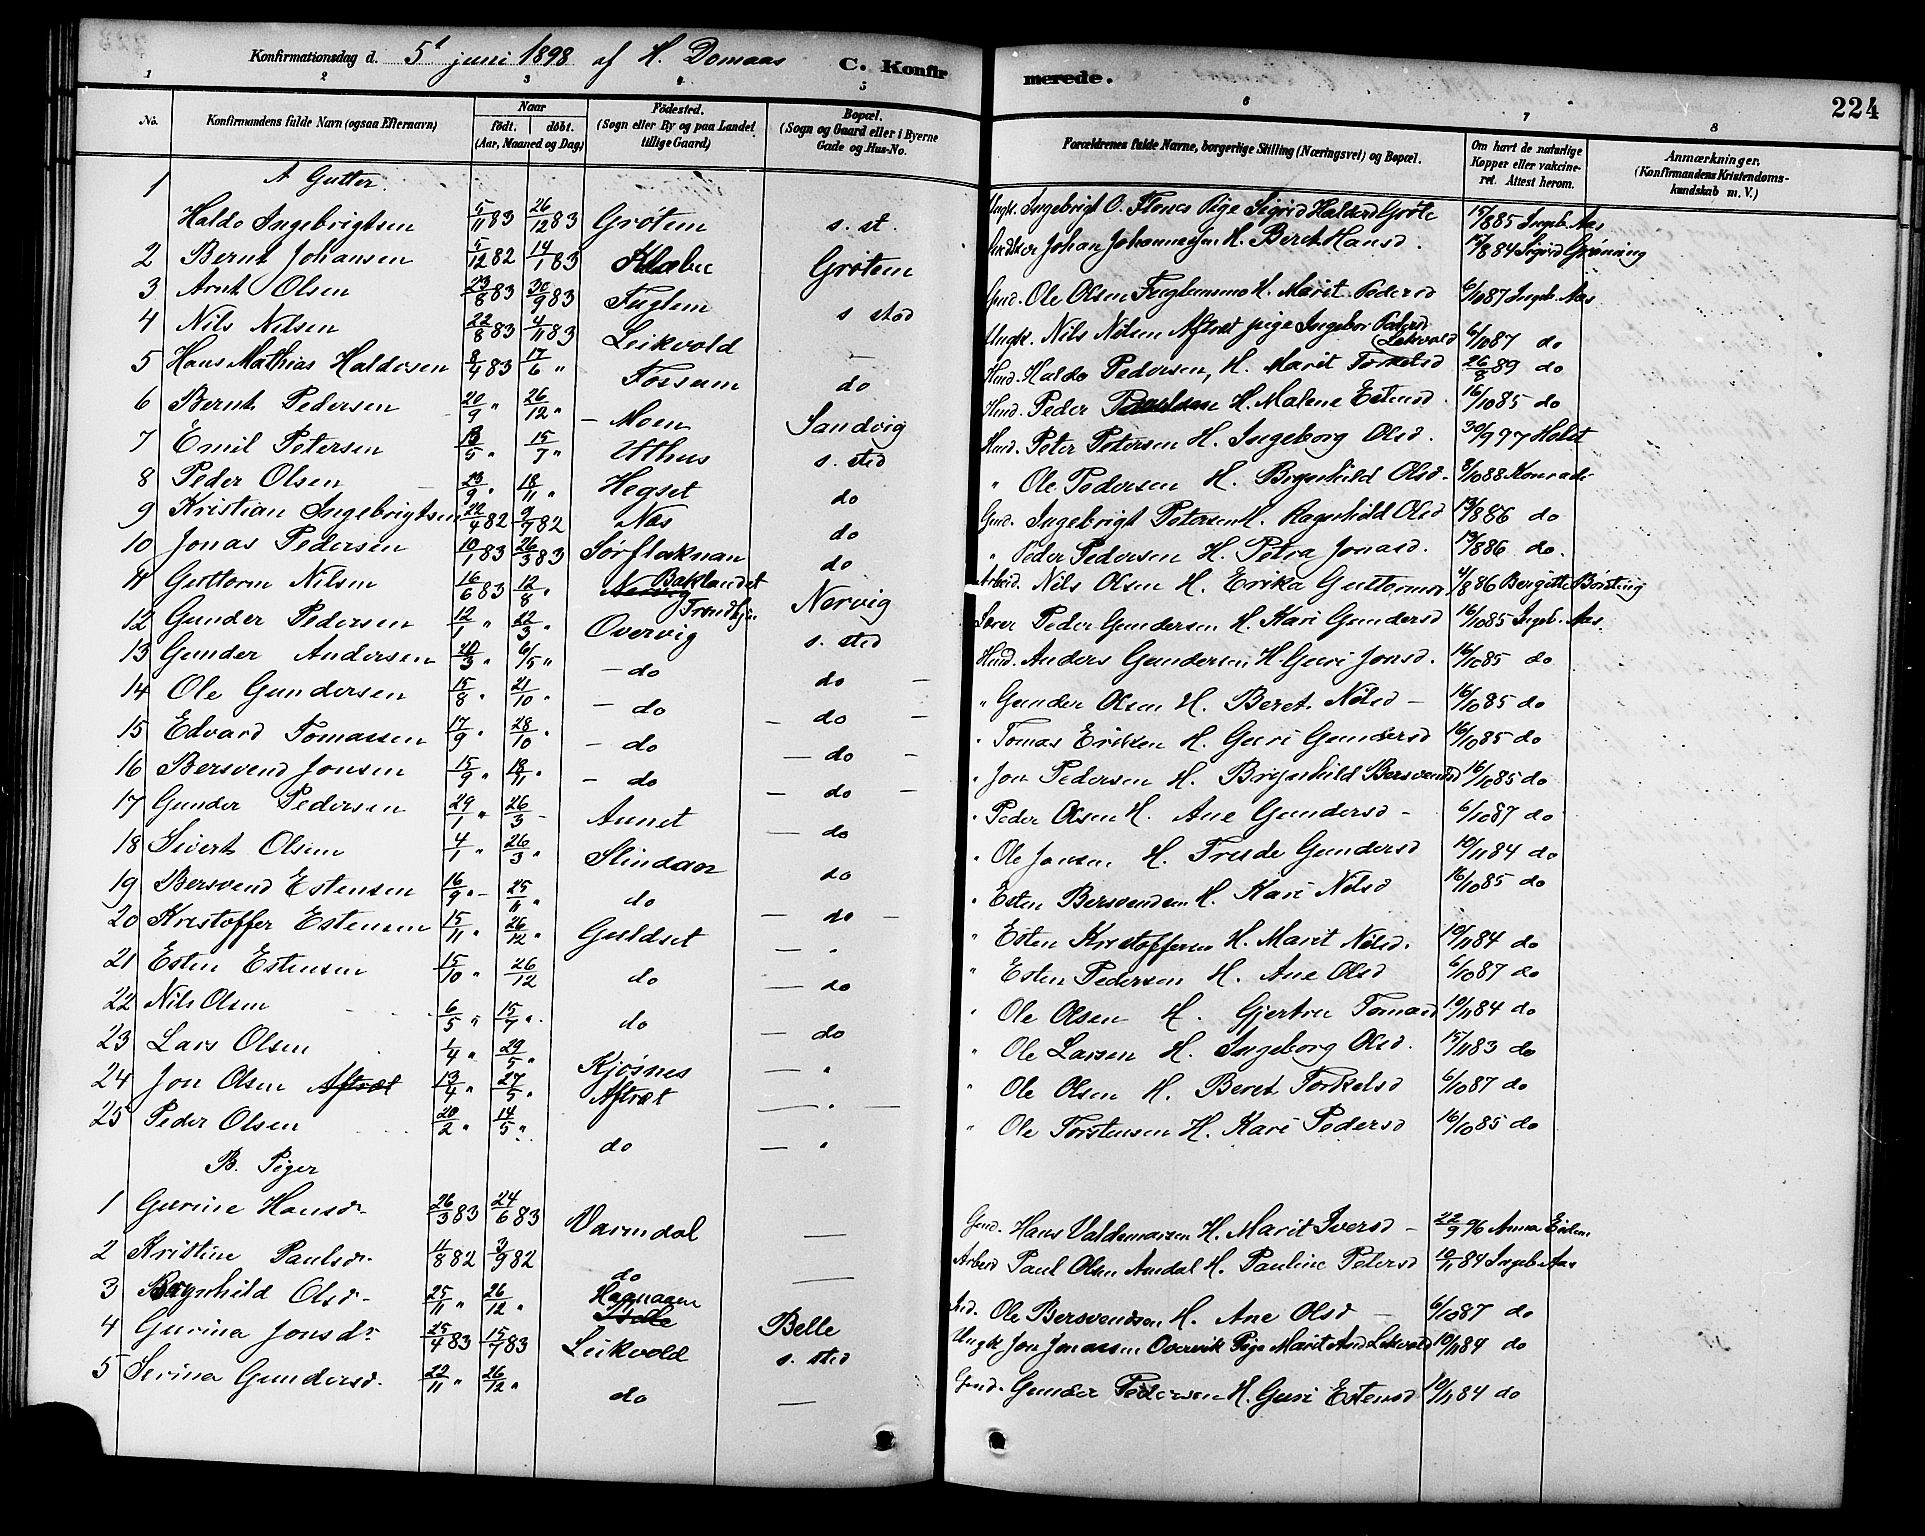 Konfirmationsdag d. 5t juni 1898 af H. Domaas C. Konfirmerede. 224
1 2 3 4 5 6 7 8
No. Konfirmandens fulde Navn (ogsaa Efternavn) Naar født. døbt. (Aar, Maaned og Dag) Fødested. (Sogn eller By og paa Landet tillige Gaard) Bopæl. (Sogn og Gaard eller i Byerne Gade og Hus-No. Forældrenes fulde Navne, borgerlige Stilling (Næringsvei) og Bopæl. Om havt de naturlige Kopper eller vakcineret. Attest herom. Anmærkninger. (Konfirmandens Kristendomskundskab m. V.)
A Gutter.
1 Haldo Ingebrigtsen 5/11 83 26/12 83 Grøtem s. st. Ungk. Ingebrigt O. Flenes Pige Sigrid Haldosd Grøte 15/8 85 Ingeb. Aas
2 Bernt Johansen 5/12 82 14/1 83 Klæbu Grøtem Johan Johannesen H. Beret Hansd. 15/8 84 Sigrid Grønning
3 Arnt Olsen 23/8 83 30/9 83 Fuglem s sted Gmd. Ole Olsen Fuglemmo H. Marit Pedersd 6/10 87 Ingeb. Aas
4 Nils Nilsen 22/8 83 4/11 83 Leikvold — Ungk. Nils Nilsen Aftret pige Ingebor Pedersd Lekvold 6/10 87 do
5 Hans Mathias Haldosen 8/4 83 17/6 " Fossum do Husd. Haldo Pedersen, H. Marit Torkelsd 26/8 89 do
6 Bernt Pedersen 20/9 " 26/12 " — Moen Sandvig Husd. Peder H. Malene Estensd. 16/10 85 do
7 Emil Petersen 13/5 " 15/7 " Uthus s. sted Husd. Peter Petersen H. Ingeborg Olsd. 30/9 97 Holst
8 Peder Olsen 23/9 " 18/11 " Hegset do " Ole Pedersen H. Brynhild Olsd. 8/10 88 Konradi
9 Kristian Ingebrigtsen 22/4 82 9/7 82 Næs do Gmd. Ingebrigt Petersen H. Ragnhild Olsd 13/8 86 do
10 Jonas Pedersen 10/1 83 26/3 83 Sørflaknan do " Peder Pedersen H. Petra Jonasd. 13/8 86 do.
11 Guttorm Nilsen 16/6 83 12/8 " Nervig Baklandet Trondhjem Nervig Arbeid. Nils Olsen H. Erika Guttormsd 4/8 86 Bergitte Børsting
12 Gunder Pedersen 12/1 " 22/3 " Overvig s. sted Lærer Peder Gundersen H. Kari Gundersd 16/10 85 Ingeb. Aas.
13 Gunder Andersen 20/3 " 6/5 " — do do — Husd. Anders Gundersen H Guri Jonsd. 16/10 85 do
14 Ole Gundersen 15/8 " 21/10 " — do — do — " Gunder Olsen H. Beret Nilsd — 16/10 85 do
15 Edvard Tomassen 17/9 " 28/10 " — do — do — " Tomas Eriksen H. Guri Gundersd 16/10 85 do
16 Bersvend Jonsen 15/9 " 18/11 " — do — do — " Jon Pedersen H. Brynhild Bersvendsd 16/10 85 do
17 Gunder Pedersen 29/1 " 26/3 — Aunet — do " Peder Olsen H. Ane Gundersd — 6/10 87 do
18 Sivert Olsen 4/1 " 26/3 " Slindaas do " Ole Jonsen H. Gundersd 10/11 84 do
19 Bersvend Estensen 16/9 " — 25/11 " do — do — " Esten Bersvendsen H. Kari Nilsd 16/10 85 do
20 Kristoffer Estensen 15/11 " 26/12 " Guldset — " " Esten Kristoffersen H. Marit Nilsd. 10/11 84 do
21 Esten Estensen 15/10 " 26/12 do — do " Esten Pedersen H. Ane Olsd 6/10 87 do
22 Nils Olsen 6/5 " 15/7 " do — do " Ole Olsen H. Gjertru Tomasd 10/11 84 do
23 Lars Olsen 1/4 " 29/5 " Kjøsnes — " " Ole Larsen H. Ingeborg Olsd. 15/11 83 do
24 Jon Olsen Aftræt 13/4 " 27/5 " Aftræt — " — " Ole Olsen H. Beret Torkelsd 6/10 87 do
25 Peder Olsen 20/2 " 14/5 " do — " " Ole Torstensen H. Kari Pedersd 16/10 85 do
B. Piger
1 Gurine Hansdr. 26/3 83 24/6 83 Varmdal — Gmd. Hans Valdemarsen H. Marit Iversd — 22/9 96 Anna
2 Kristine Paulsdr. 11/8 82 3/9 82 do — Arbeid Paul Olsen Amdal H. Pauline Petersd 10/11 84 Ingeb Aas
3 Brynhild Olsd. 25/11 " 26/12 " Hagnaaen Belle Ole Bersvendsen H. Ane Olsd — 6/10 87 do
4 Gurina Jonsdr 25/4 83 15/7 83 Leikvold s. sted Ungk Jon Jonassen Overvik Pige Marit Lekvold 10/11 84 do
5 Serina Gundersd. 22/11 " 26/12 " do — Gmd. Gunder Pedersen H. Guri Estensd 10/11 84 do